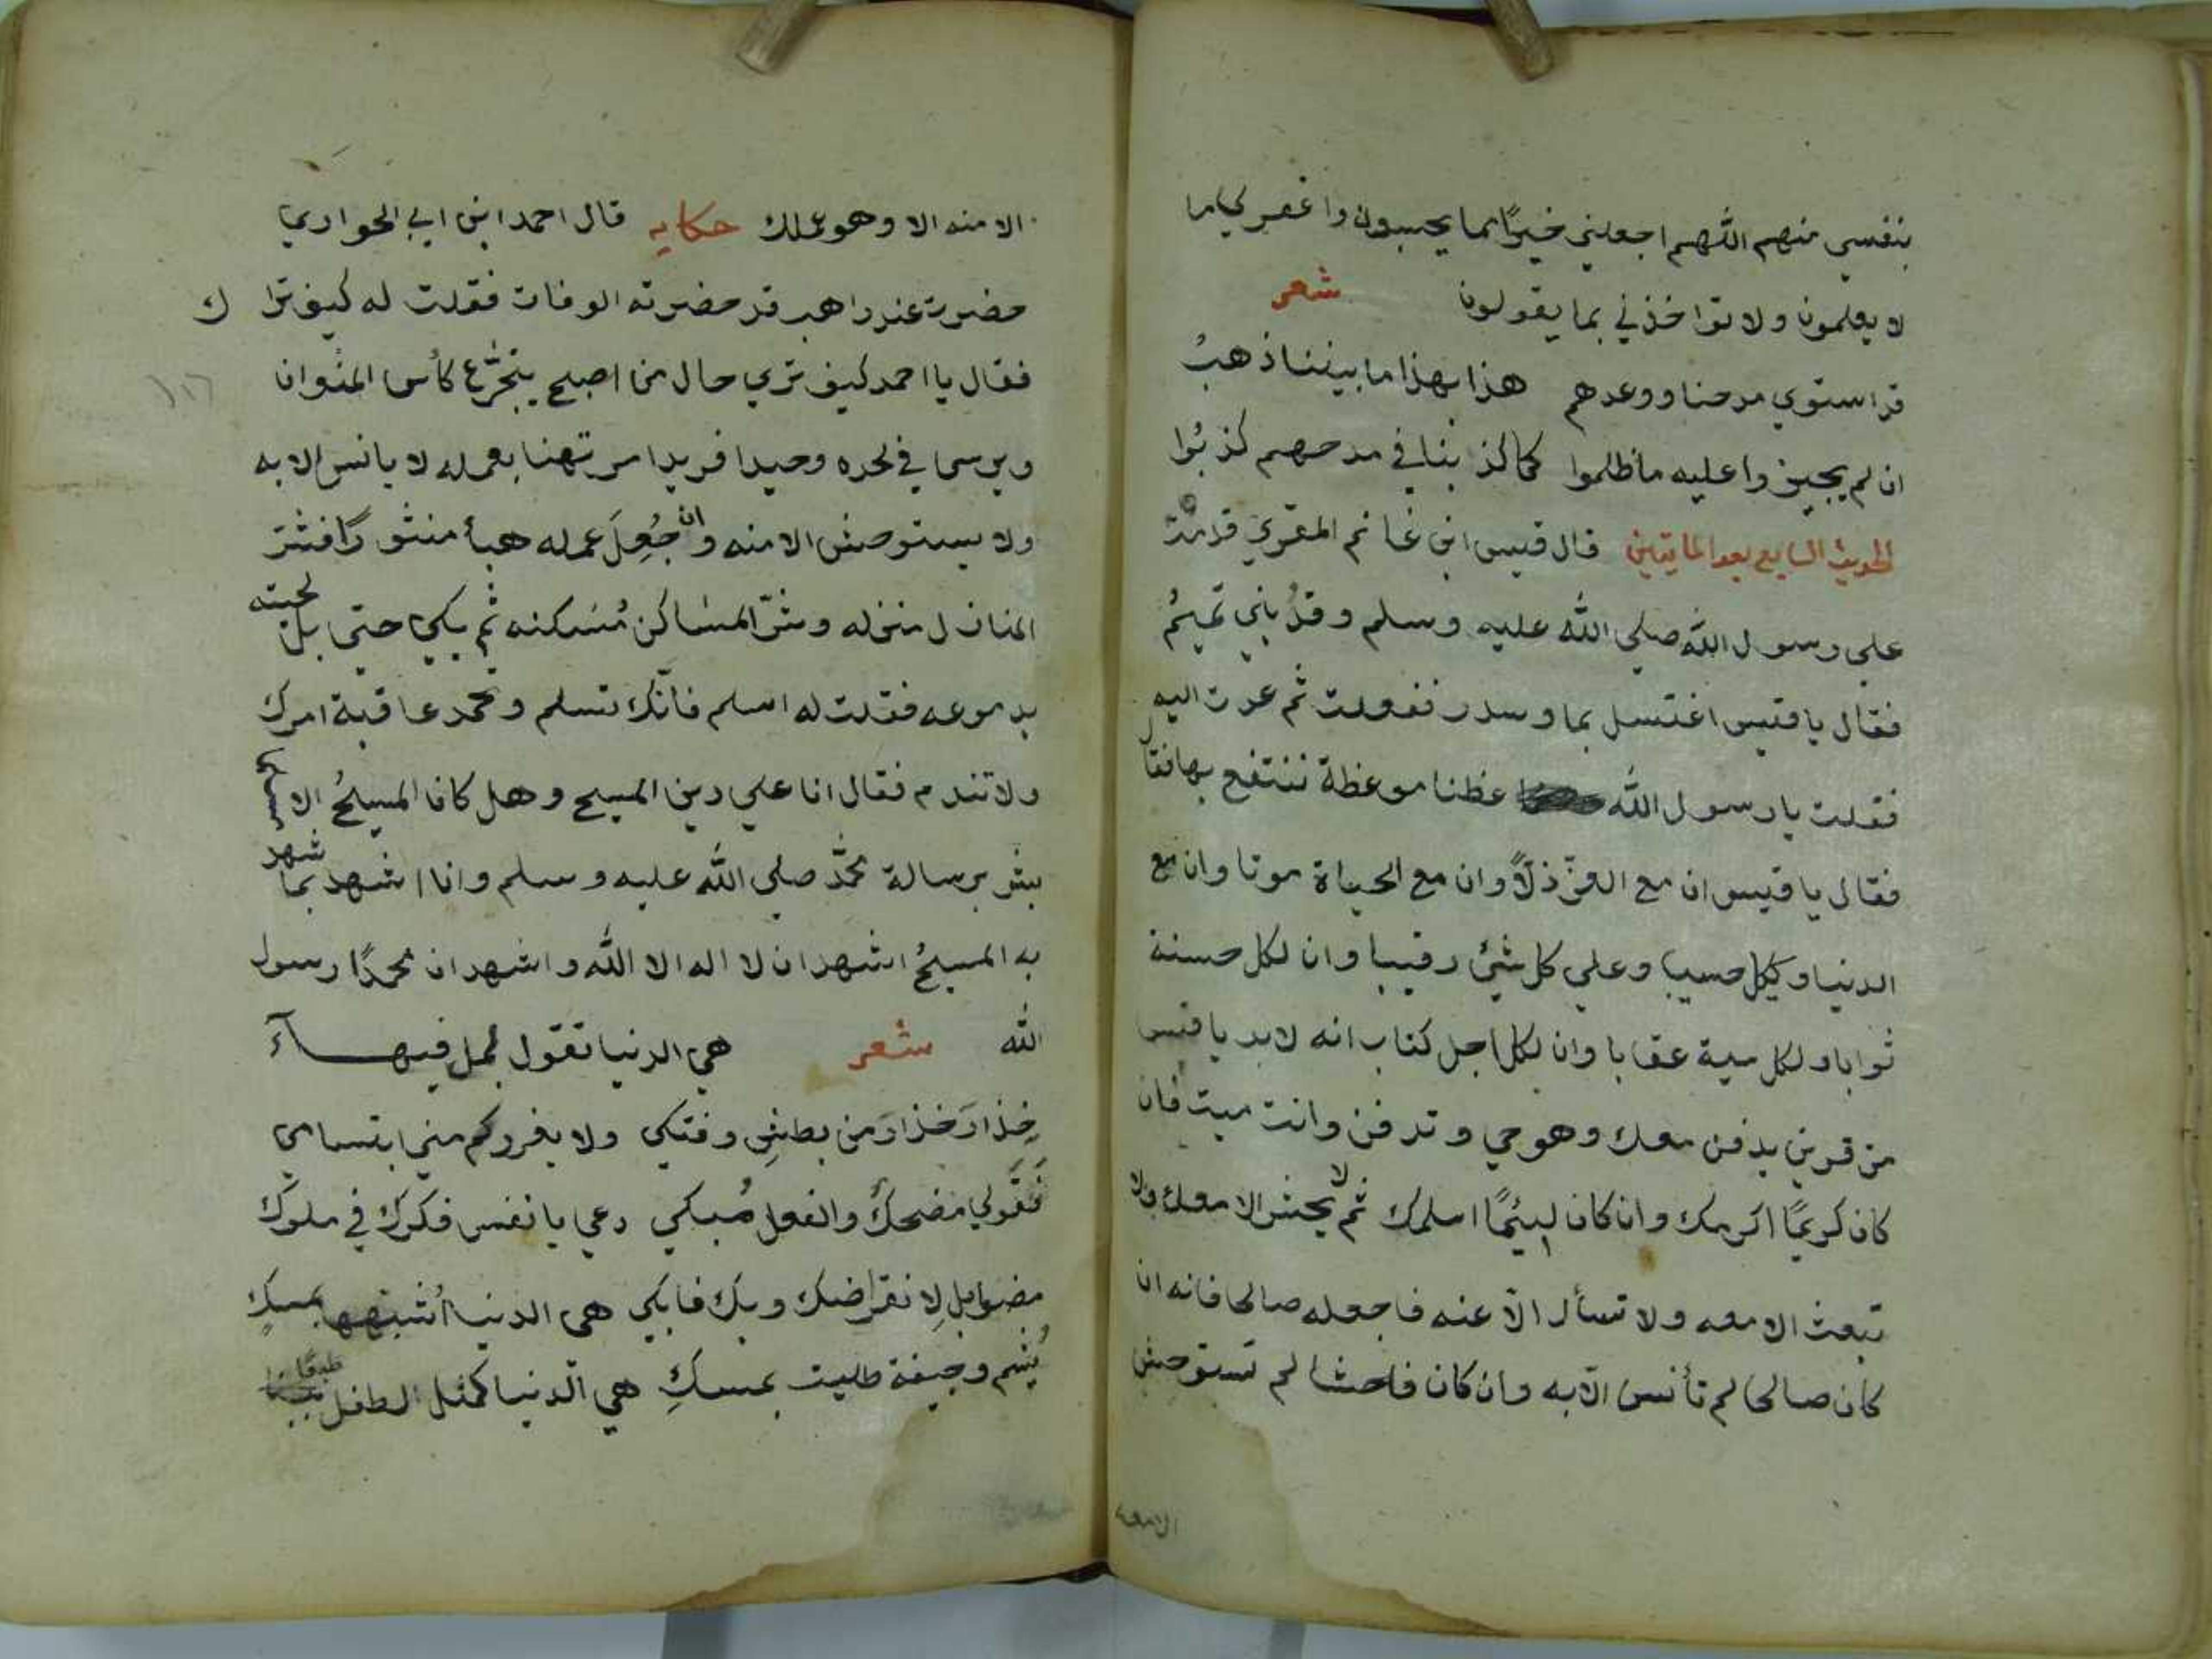 بنفسي منهم اللهم اجعلني خيرًا مما يحسبون واغفر لي ما
لا يعلمون ولا تواخذني بما يقولون شعر
قد استوي مدحنا ووعدهم هذا بهذا ما بيننا ذهبُ
ان لم يجيزوا عليه ما ظلموا كما كذبنا في مدحهم كذبُوا
الحديث السابع بعد المايتين قال قيس ابن غانم المقري قدمت
علي رسول الله صلي الله عليه وسلم وقد بني تميمُ
فقال يا قيس اغتسل بما وسدر ففعلت ثم عدت اليه
فقلت يا رسول الله عظنا موعظة ننتفع بها فقال
فقال يا قيس ان مع العزّ ذلًا وان مع الحياة موتا وان مع
الدنيا وكيل حسيبا وعلي كل شيْ رقيبا وان لكل حسنة
ثوابا ولكل سية عقابا وان لكل اجل كتاب انه لابد يا قيس
من قرين يدفن معك وهو حي وتدفن وانت ميت فان
كان كريمًا اكرمك وان كان ليئمًا اسلمك ثم لا يحشر الا معك ولا
تبعث الا معه ولا تسأل الّا عنه فاجعله صالحا فانه ان
كان صالحا لم تأنس الّا به وان كان فاحشا لم تستوحش
الا معه
الا منه الا وهو عملك حكايه قال احمد ابن ابي الحواري
حضرت عند راهب قد حضرته الوفات فقلت له كيف ترا ك
فقال يا احمد كيف تري حال من اصبح يتجرّع كأس المنْوان
ويرسى في لحده وحيدا فريدا مرتهنا بعمله لا يانس الا به
ولا يستوحش الا منه وان جُعِلَ عمله هبأ منثورًا فشر
المنازل منزله وشرّ المساكن مُسكنه ثم بكي حتي بل لحيته
بدموعه فقلت له اسلم فانّك تسلم وتحمد عاقبة امرك
ولا تندم فقال انا علي دين المسيح وهل كان المسيحُ الا
يبشر برسالة محمّد صلي الله عليه وسلم وانا اشهد بما شهد
به المسيحُ اشهد ان لا اله الا الله واشهد ان محمدًا رسول
الله شعر هي الدنيا تقول لمل فيهــا آء
حِذارَ حذارَ من بطشِ وفتكي ولا يغرركم مني ابتسامي
فَقَولي مضحكٌ والفعل مُبكي دعي يا نفس فكرك في ملوك
مضوا بل لانقراضك ويك فابكي هي الدنيا أشبهها بمسكٍ
يُشم وجيفة طليت بمسكِ هي الدنيا كمثل الطفل